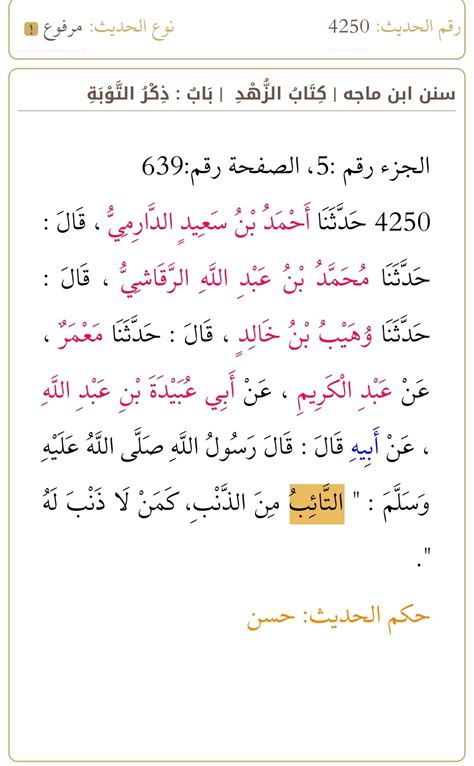 رقم الحديث: 4250 نوع الحديث: مرفوع
سنن ابن ماجه | كِتَابُ الزُّهْدِ | بَابٌ : ذِكْرُ التَّوْبَةِ
الجزء رقم :5، الصفحة رقم:639
4250 حَدَّثَنَا أَحْمَدُ بْنُ سَعِيدٍ الدَّارِمِيُّ ، قَالَ :
حَدَّثَنَا مُحَمَّدُ بْنُ عَبْدِ اللَّهِ الرَّقَاشِيُّ ، قَالَ :
حَدَّثَنَا وُهَيْبُ بْنُ خَالِدٍ ، قَالَ : حَدَّثَنَا مَعْمَرٌ ،
عَنْ عَبْدِ الْكَرِيمِ ، عَنْ أَبِي عُبَيْدَةَ بْنِ عَبْدِ اللَّهِ
، عَنْ أَبِيهِ قَالَ : قَالَ رَسُولُ اللَّهِ صَلَّى اللَّهُ عَلَيْهِ
وَسَلَّمَ : " التَّائِبُ مِنَ الذَّنْبِ، كَمَنْ لَا ذَنْبَ لَهُ
".
حكم الحديث: حسن